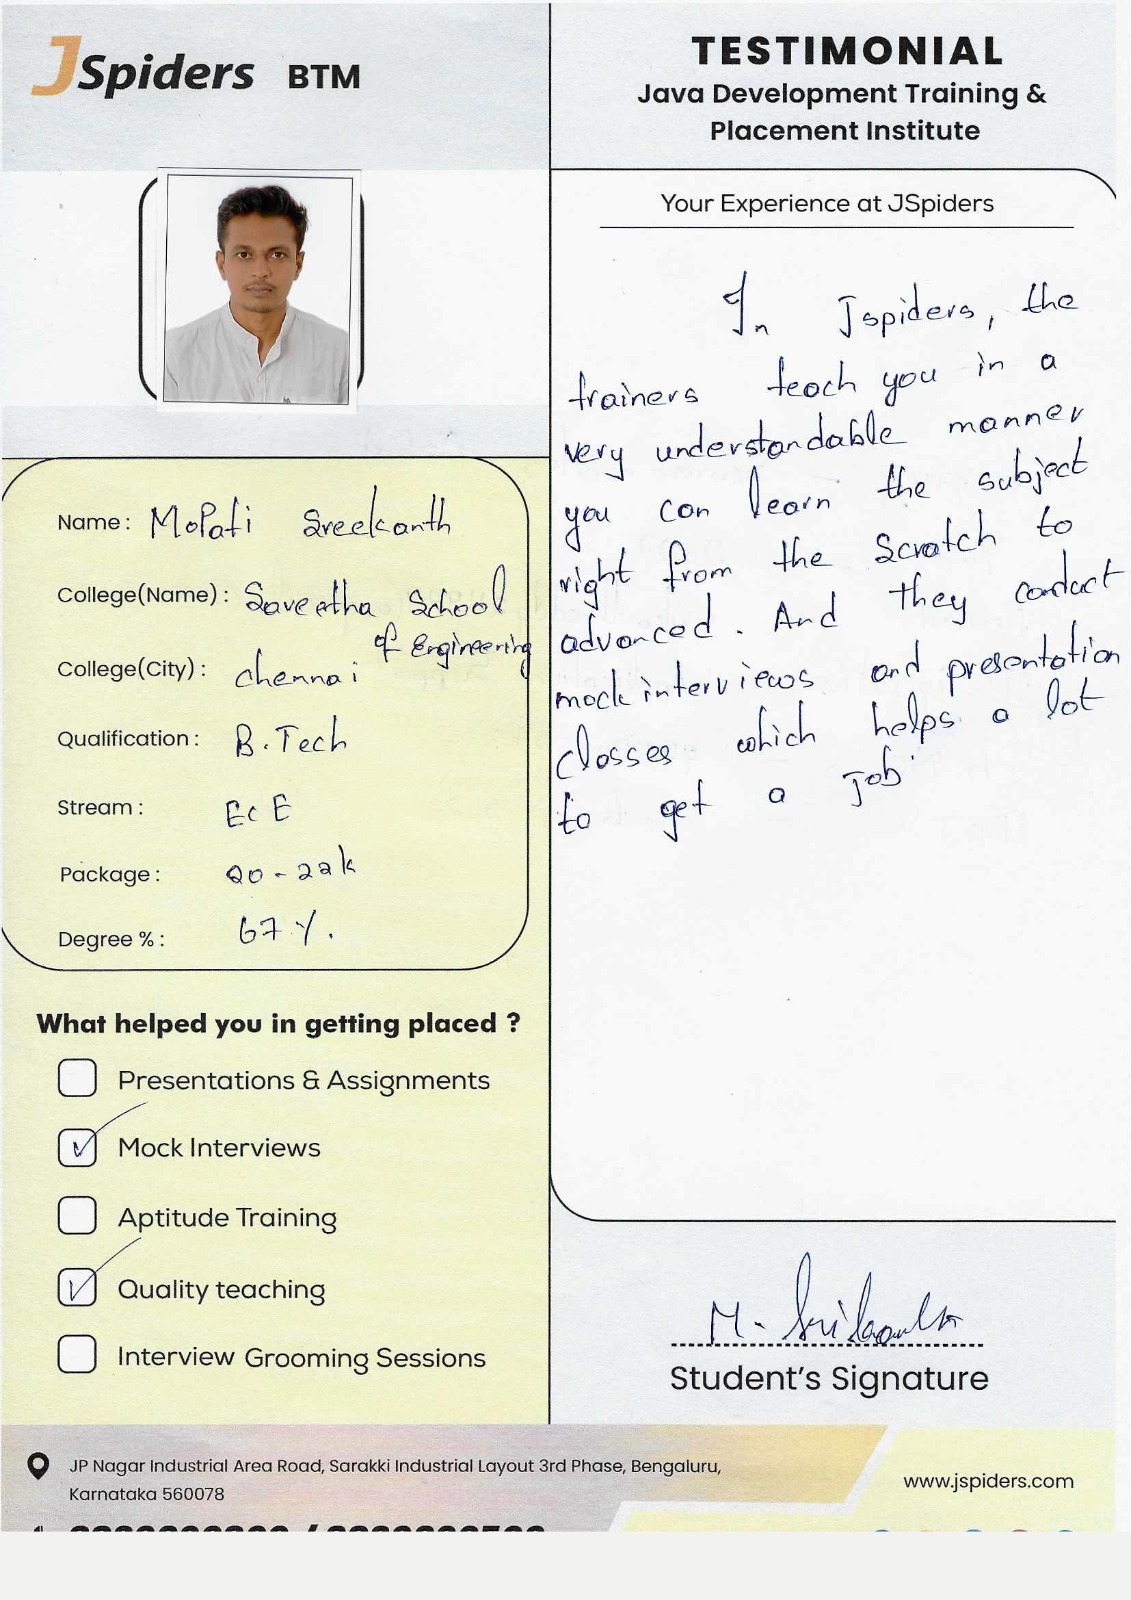 JSpiders BTM
TESTIMONIAL
Java Development Training &
Placement Institute
Your Experience at JSpiders
In Jspiders, the
trainers teach you in a
very understandable manner
you can learn the subject
right from the Scratch to
advanced. And they conduct
mock interviews and presentation
classes which helps a lot
to get a Job.
Name: MoPati Sreekanth
College(Name): Saveetha School
of Engineering
College(City): chennai
Qualification: B.Tech
Stream: EcE
Package: 20-22k
Degree %: 67%.
What helped you in getting placed ?
Presentations & Assignments
Mock Interviews
Aptitude Training
Quality teaching
Interview Grooming Sessions
M. Srikanth
Student's Signature
JP Nagar Industrial Area Road, Sarakki Industrial Layout 3rd Phase, Bengaluru,
Karnataka 560078
www.jspiders.com